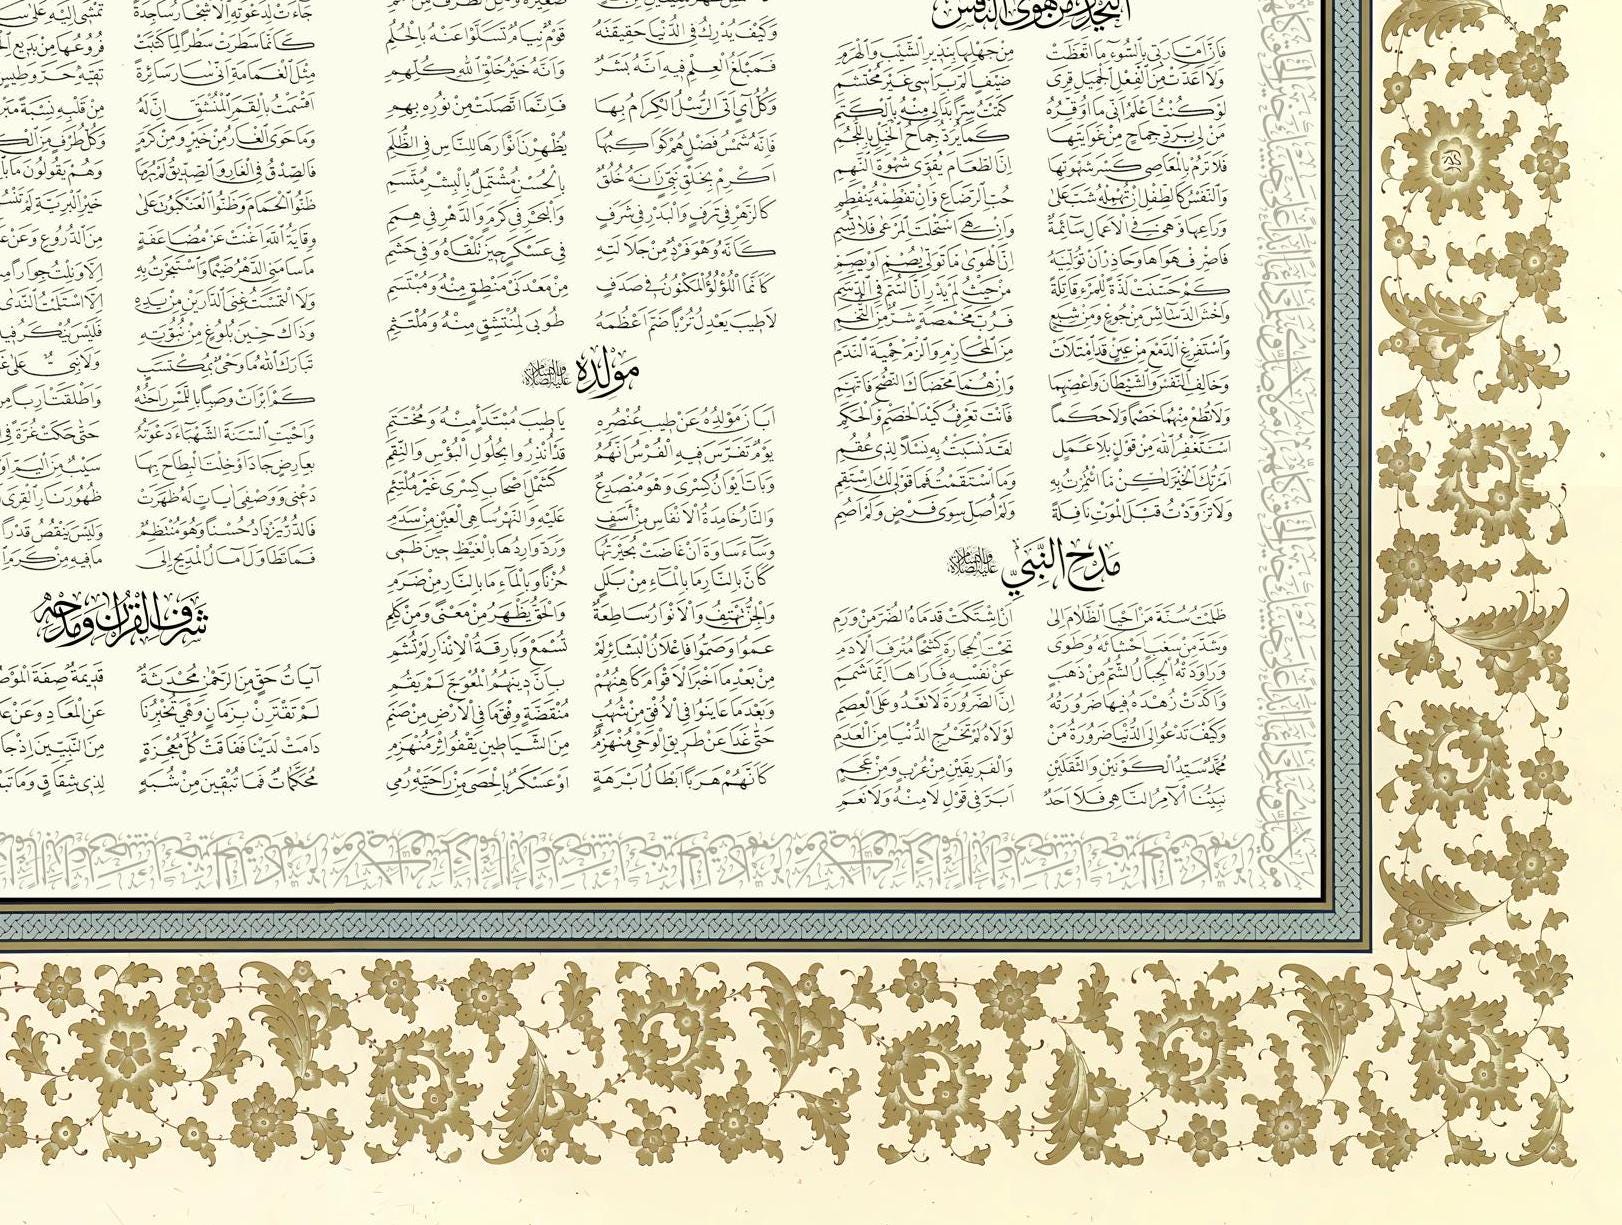 التحذير من هوى النفس
فإن أمارتي بالسوء ما اتعظت من جهلها بنذير الشيب والهرم
ولا أعدت من الفعل الجميل قرى ضيف ألم برأسي غير محتشم
لو كنت أعلم أني ما أوقره كتمت سرا بدا لي منه بالكتم
من لي برد جماح من غوايتها كما يرد جماح الخيل باللجم
فلا ترم بالمعاصي كسر شهوتها إن الطعام يقوي شهوة النهم
والنفس كالطفل إن تهمله شب على حب الرضاع وإن تفطمه ينفطم
فاصرف هواها وحاذر أن توليه إن الهوى ما تولى يصم أو يصم
وراعها وهي في الأعمال سائمة وإن هي استحلت المرعى فلا تسم
كم حسنت لذة للمرء قاتلة من حيث لم يدر أن السم في الدسم
واخش الدسائس من جوع ومن شبع فرب مخمصة شر من التخم
واستفرغ الدمع من عين قد امتلأت من المحارم والزم حمية الندم
وخالف النفس والشيطان واعصهما وإن هما محضاك النصح فاتهم
ولا تطع منهما خصما ولا حكما فأنت تعرف كيد الخصم والحكم
أستغفر الله من قول بلا عمل لقد نسبت به نسلا لذي عقم
أمرتك الخير لكن ما ائتمرت به وما استقمت فما قولي لك استقم
ولا تزودت قبل الموت نافلة ولم أصل سوى فرض ولم أصم
مدح النبي عليه الصلاة والسلام
ظلمت سنة من أحيا الظلام إلى أن اشتكت قدماه الضر من ورم
وشد من سغب أحشاءه وطوى تحت الحجارة كشحا مترف الأدم
وراودته الجبال الشم من ذهب عن نفسه فأراها أيما شمم
وأكدت زهده فيها ضرورته إن الضرورة لا تعدو على العصم
وكيف تدعو إلى الدنيا ضرورة من لولاه لم تخرج الدنيا من العدم
محمد سيد الكونين والثقلين والفريقين من عرب ومن عجم
نبينا الآمر الناهي فلا أحد أبر في قول لا منه ولا نعم
وكيف يدرك في الدنيا حقيقته قوم نيام تسلوا عنه بالحلم
فمبلغ العلم فيه أنه بشر وأنه خير خلق الله كلهم
وكل آي أتى الرسل الكرام بها فإنما اتصلت من نوره بهم
فإنه شمس فضل هم كواكبها يظهرن أنوارها للناس في الظلم
أكرم بخلق نبي زانه خلق بالحسن مشتمل بالبشر متسم
كالزهر في ترف والبدر في شرف والبحر في كرم والدهر في همم
كأنه وهو فرد من جلالته في عسكر حين تلقاه وفي حشم
كأنما اللؤلؤ المكنون في صدف من معدني منطق منه ومبتسم
لا طيب يعدل تربا ضم أعظمه طوبى لمنتشق منه وملتثم
مولده عليه الصلاة والسلام
أبان مولده عن طيب عنصره يا طيب مبتدإ منه ومختتم
يوم تفرس فيه الفرس أنهم قد أنذروا بحلول البؤس والنقم
وبات إيوان كسرى وهو منصدع كشمل أصحاب كسرى غير ملتئم
والنار خامدة الأنفاس من أسف عليه والنهر ساهي العين من سدم
وساء ساوة أن غاضت بحيرتها ورد واردها بالغيظ حين ظمي
كأن بالنار ما بالماء من بلل حزنا وبالماء ما بالنار من ضرم
والجن تهتف والأنوار ساطعة والحق يظهر من معنى ومن كلم
عموا وصموا فإعلان البشائر لم تسمع وبارقة الإنذار لم تشم
من بعد ما أخبر الأقوام كاهنهم بأن دينهم المعوج لم يقم
وبعد ما عاينوا في الأفق من شهب منقضة وفق ما في الأرض من صنم
حتى غدا عن طريق الوحي منهزم من الشياطين يقفو إثر منهزم
كأنهم هربا أبطال أبرهة أو عسكر بالحصى من راحتيه رمي
جاءت لدعوته الأشجار ساجدة تمشي إليه على
كأنما سطرت سطرا لما كتبت فروعها من بديع
مثل الغمامة أنى سار سائرة تقيه حر وطيس
أقسمت بالقمر المنشق إن له من قلبه نسبة
وما حوى الغار من خير ومن كرم وكل طرف من
فالصدق في الغار والصديق لم يرما وهم يقولون ما
ظنوا الحمام وظنوا العنكبوت على خير البرية لم
وقاية الله أغنت عن مضاعفة من الدروع وعن
ما سامني الدهر ضيما واستجرت به إلا ونلت جوارا
ولا التمست غنى الدارين من يده إلا استلمت الندى
وذاك حين بلوغ من نبوته فليس ينكر
تبارك الله ما وحي بمكتسب ولا نبي على
كم أبرأت وصبا باللمس راحته وأطلقت أربا
وأحيت السنة الشهباء دعوته حتى حكت غرة في
بعارض جاد أو خلت البطاح بها سيب من اليم أو
دعني ووصفي آيات له ظهرت ظهور نار القرى
فالدر يزداد حسنا وهو منتظم وليس ينقص قدرا
فما تطاول آمال المديح إلى ما فيه من كرم
شرف القرآن ومدحه
آيات حق من الرحمن محدثة قديمة صفة
لم تقترن بزمان وهي تخبرنا عن المعاد وعن
دامت لدينا ففاقت كل معجزة من النبيين إذ
محكمات فما تبقين من شبه لذي شقاق وما
مولاي صل وسلم دائما أبدا على حبيبك خير الخلق كلهم